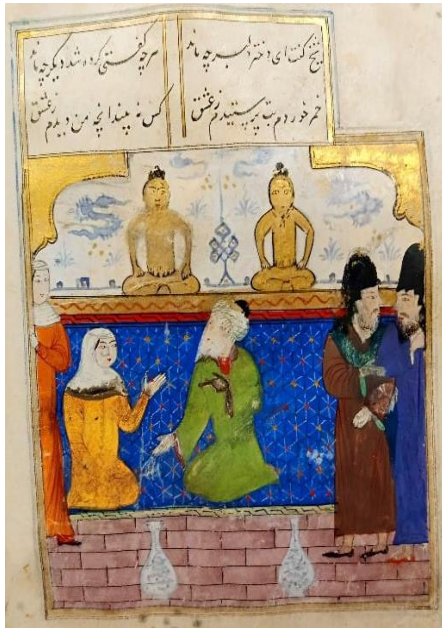 شیخ گفت ای دختر دلبر چه ماند هرچه گفتی کرده شد دیگر چه ماند
خمر خوردم بت پرستیدم ز عشق کس نه بیند انچه من دیدم ز عشق